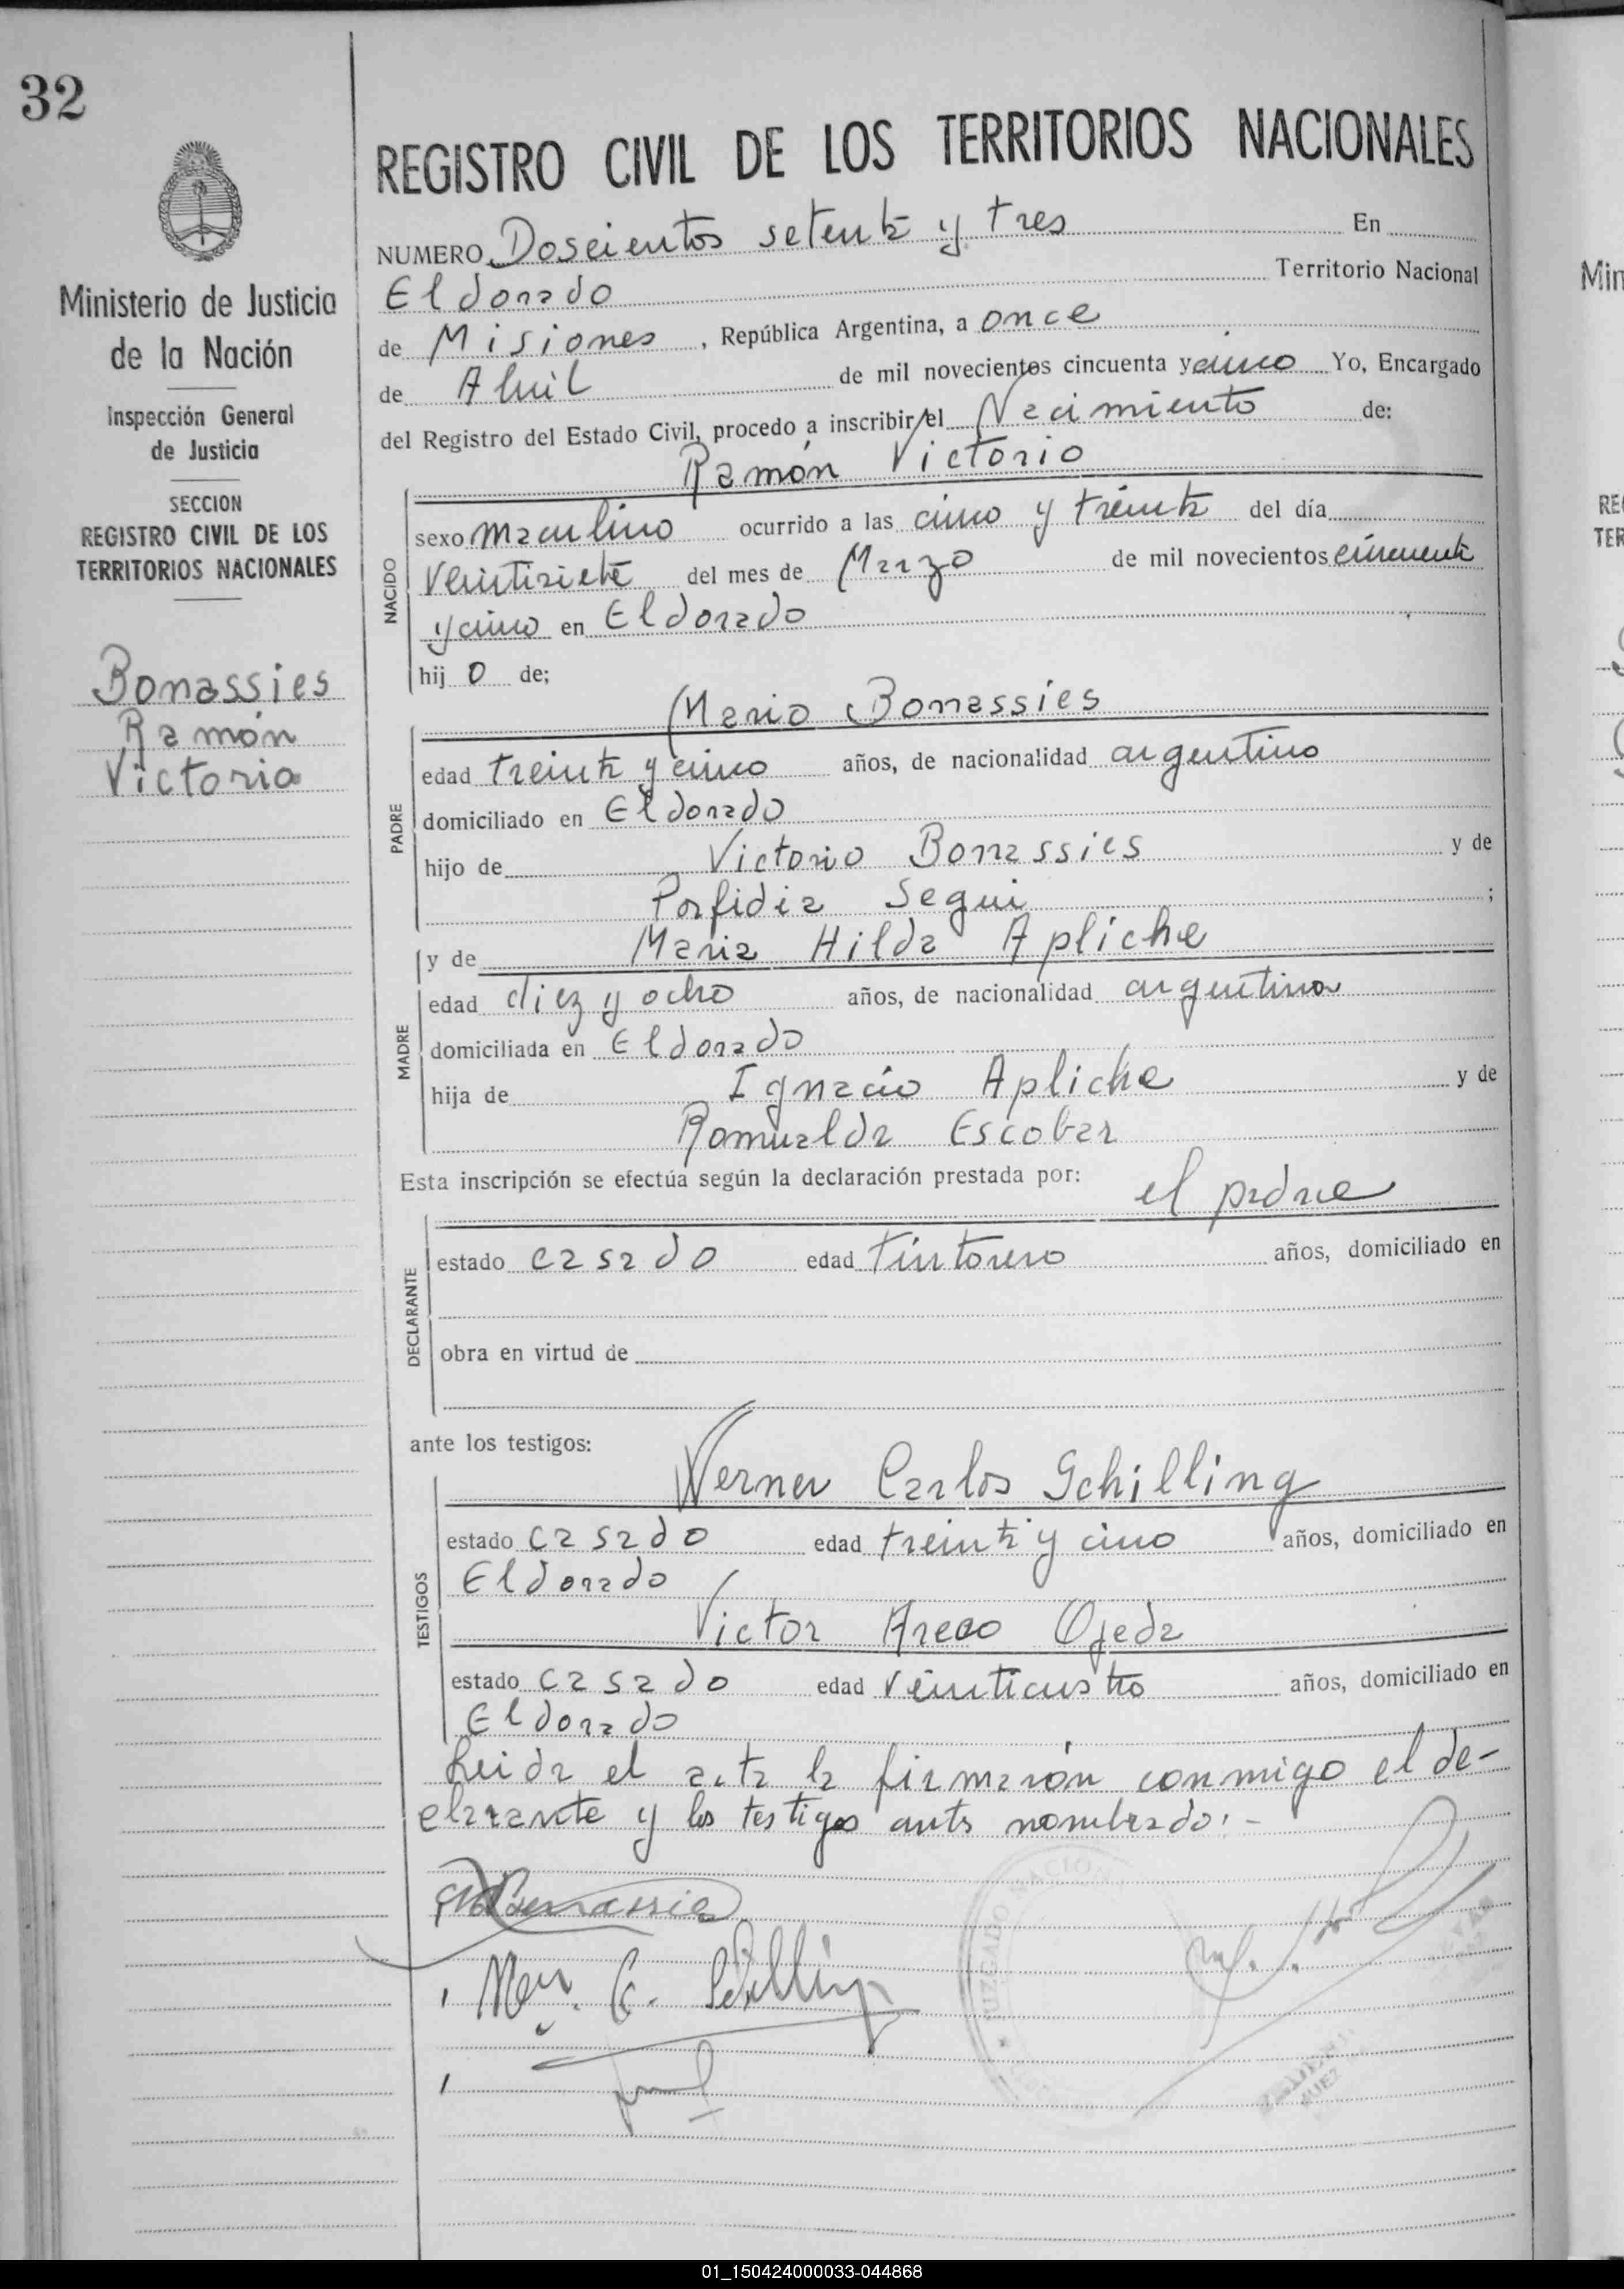 32
Ministerio de Justicia
de la Nación
Inspección General
de Justicia
SECCION
REGISTRO CIVIL DE LOS
TERRITORIOS NACIONALES
Bonassies
Ramón
Victorio
REGISTRO CIVIL DE LOS TERRITORIOS NACIONALES
NUMERO Doscientos setenta y tres En
Eldorado Territorio Nacional
de Misiones, República Argentina, a once
de Abril de mil novecientos cincuenta y cinco Yo, Encargado
del Registro del Estado Civil, procedo a inscribir el Nacimiento de:
Ramón Victorio
NACIDO
sexo masculino ocurrido a las cinco y treinta del día
veintisiete del mes de Marzo de mil novecientos cincuenta
y cinco en Eldorado
hijo de;
Mario Bonassies
PADRE
edad treinta y cinco años, de nacionalidad argentino
domiciliado en Eldorado
hijo de Victorio Bonassies y de
Porfidia Segui ;
y de Maria Hilda Apliche
MADRE
edad diez y ocho años, de nacionalidad argentina
domiciliada en Eldorado
hija de Ignacio Apliche y de
Romualda Escobar
Esta inscripción se efectúa según la declaración prestada por: el padre
DECLARANTE
estado casado edad tintorero años, domiciliado en
obra en virtud de
ante los testigos:
Werner Carlos Schilling
TESTIGOS
estado casado edad treinta y cinco años, domiciliado en
Eldorado
Victor Areco Ojeda
estado casado edad veinticuatro años, domiciliado en
Eldorado
Leida el acta la firmarón conmigo el de-
clarante y los testigos antes nombrados.-
JUZGADO NACION
JUEZ
Min
RE
TER
01_150424000033-044868